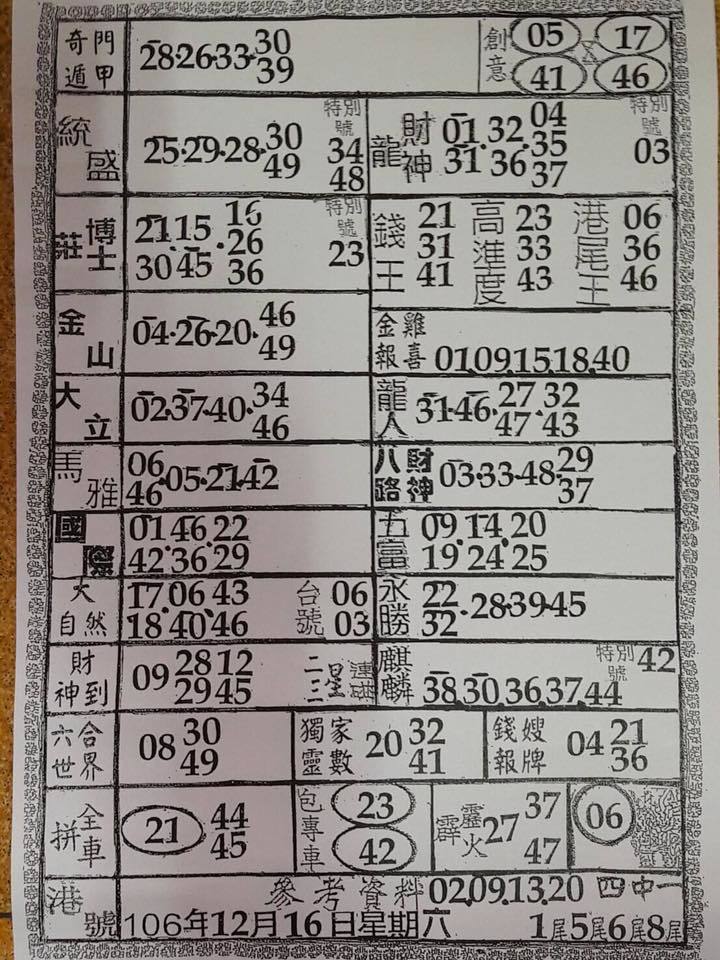 奇門遁甲 28·26·33·30 39
創意 05 17 41 46
統盛 25·29·28·30 49 特別號 34 48
龍財神 01·32·04 35 31·36·37 特別號 03
莊博士 21·15·16 26 30 45 36 特別號 23
錢王 21 31 41 高準度 23 33 43 港尾王 06 36 46
金山 04·26·20·46 49
金雞報喜 01.09.15.18.40
大立 02·37·40·34 46
龍人 31·46·27·32 47 43
馬雅 06 46·05·21·42
八路財神 03·33·48·29 37
國際 01.46.22 42.36.29
五富 09.14.20 19.24.25
大自然 17.06.43 18.40.46 台號 06 03
永勝 22 32·28·39·45
財神到 09 28 12 29 45 二三星連碰
麒麟 38.30.36.37.44 特別號 42
六合世界 08 30 49
獨家靈數 20 32 41
錢嫂報牌 04 21 36
全車拼 21 44 45
包專車 23 42
霹靂火 27 37 47
06
港號 參考資料 02.09.13.20 四中一
106年12月16日星期六 1尾5尾6尾8尾